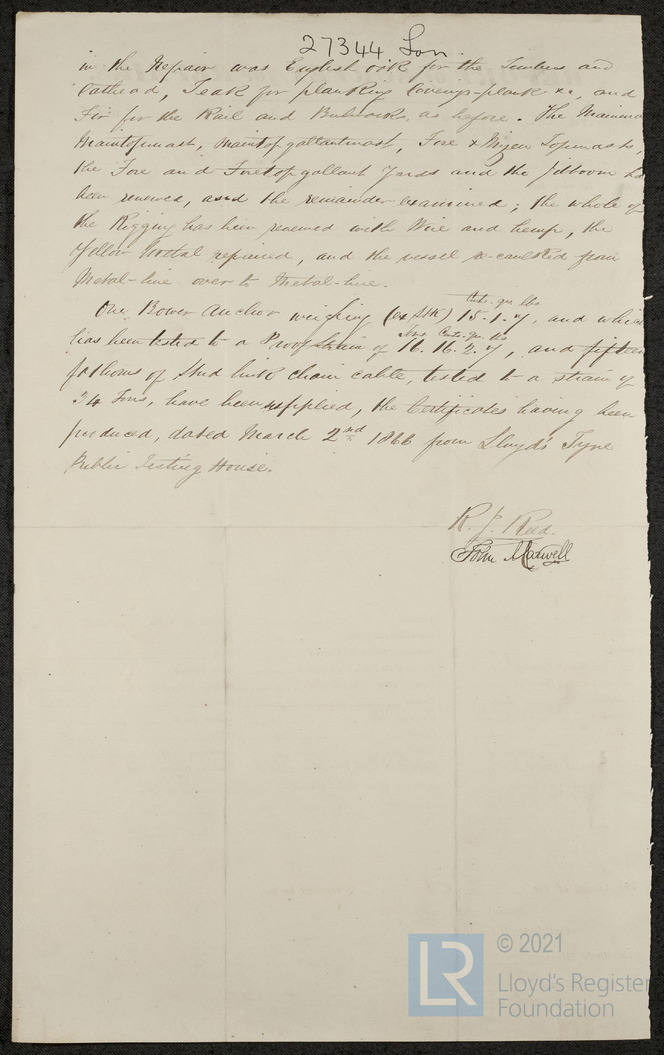 27344 Lon.
in the Repair was English oak for the Timbers and
Cathead, Teak for planking Covering-plank &c, and
Fir for the Rail and Bulwarks as before. The Mainmast
Maintopmast, Maintopgallantmast, Fore & Mizen Topmasts,
the Fore and Foretopgallant Yards and the Jibboom has
been renewed, and the remainder examined; the whole of
the Rigging has been renewed with Wire and hemp, the
Yellow Metal repaired, and the vessel re-caulked from
Metal-line over to Metal-line.
Cwts. qrs. lbs
One Bower Anchor weighing (ex Stk) 15.1.7, and which
Tons Cwts. qrs. lbs
has been tested to a Proof Strain of 16.16.2.7, and fifteen
fathoms of Stud link chain cable, tested to a strain of
34 Tons, have been supplied, the Certificates having been
produced, dated March 2nd 1866 from Lloyd's Tyne
Public Testing House.
R. J. Reed.
John Maxwell
LR
© 2021
Lloyd's Register
Foundation